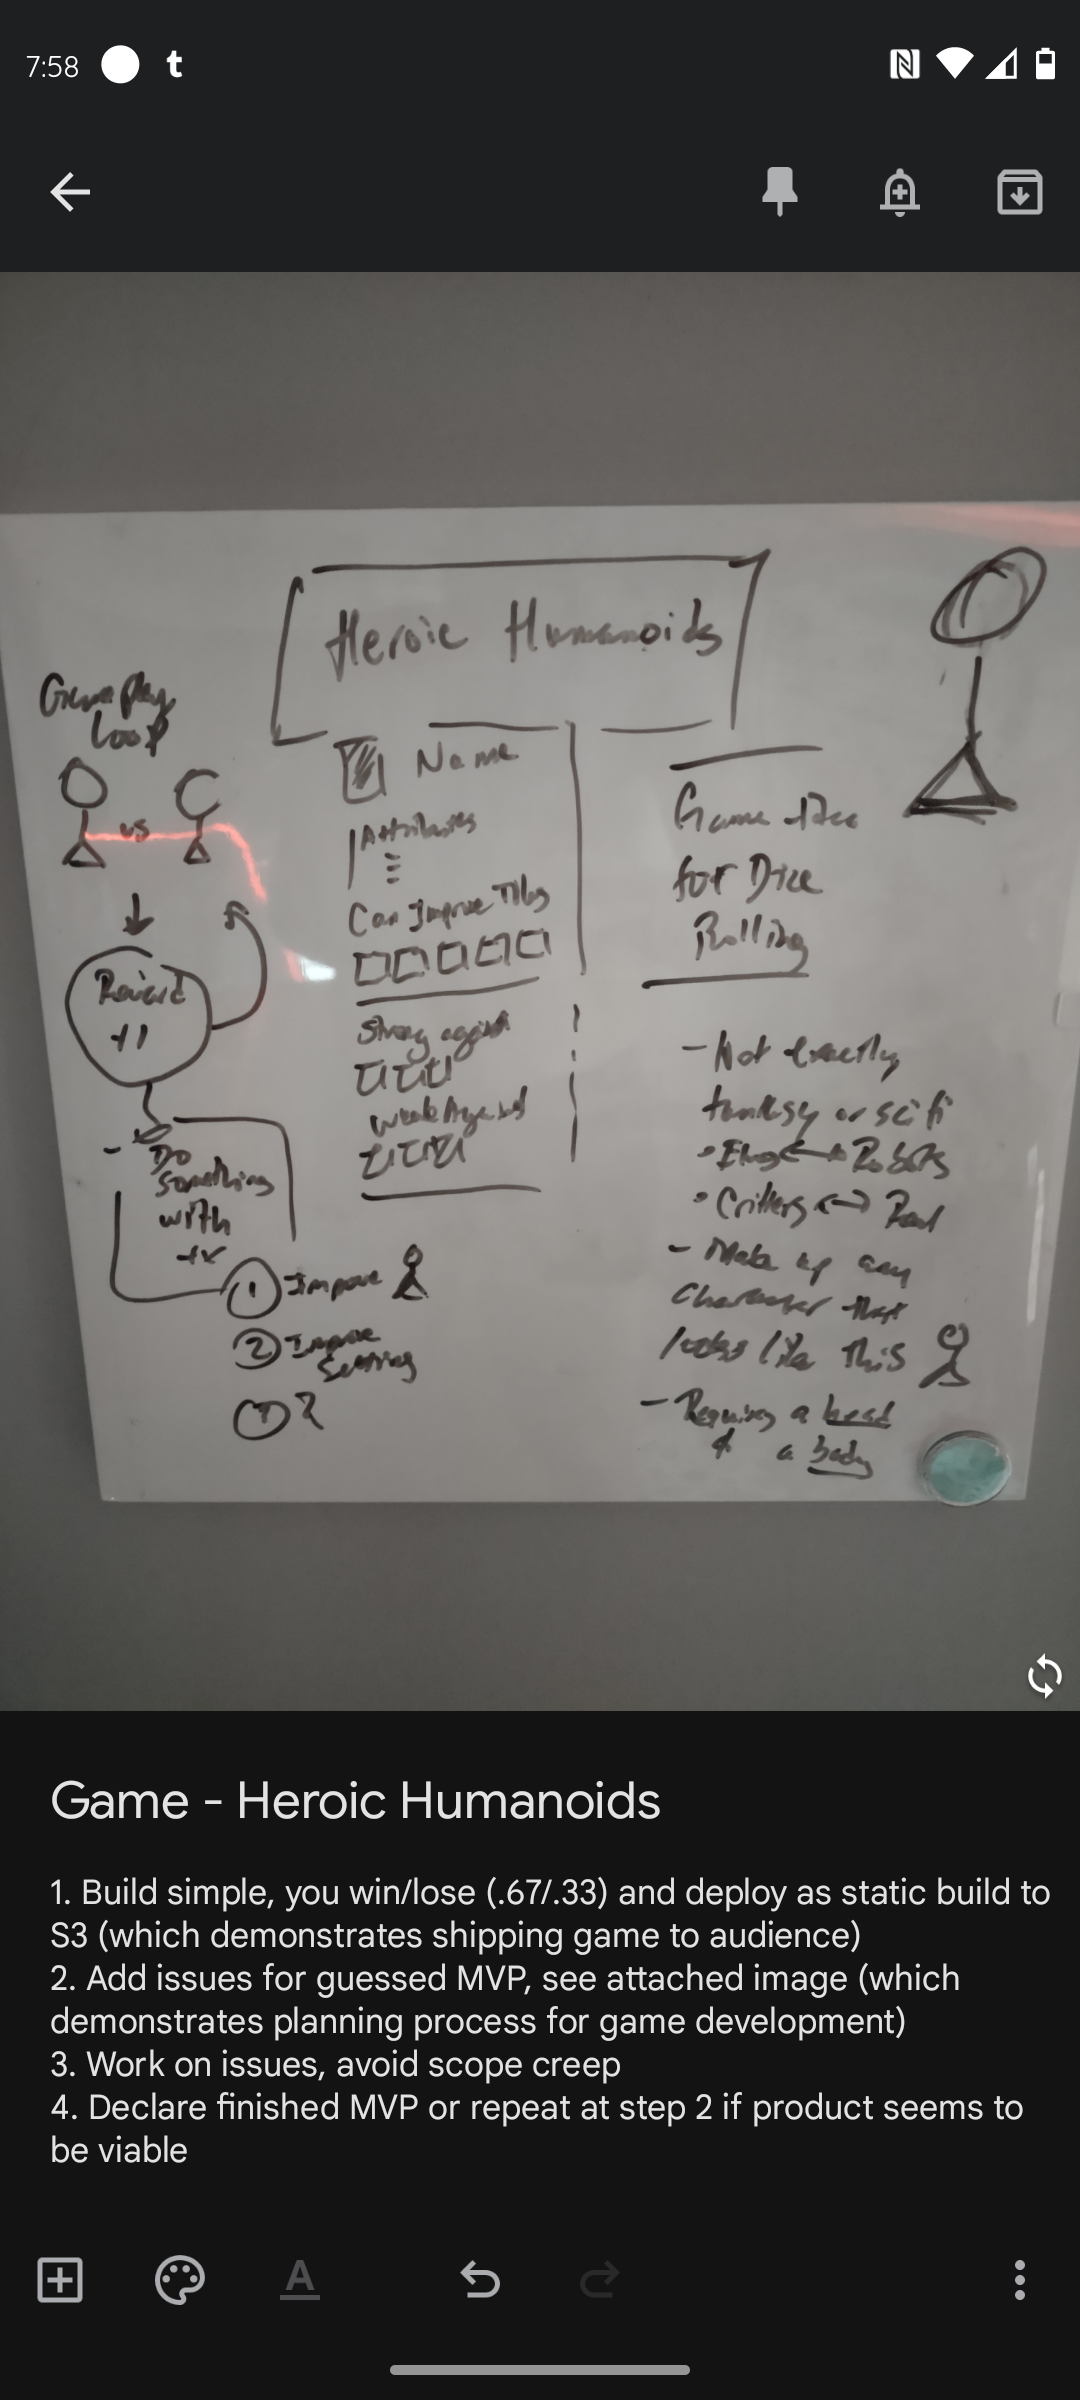 7:58
t
Heroic Humanoids
Gameplay
Loop
vs
Reward
+1
Do
Something
with
1 Improve
2 Improve
?
Name
Attributes
Can Improve Tiles
Strong against
Weak Against
Game Idea
for Dice
Rolling
- Not exactly
fantasy or sci fi
• Elves ↔ Robots
• Critters ↔ Real
- Make up any
Character that
looks like this
- Requires a head
& a body
Game - Heroic Humanoids
1. Build simple, you win/lose (.67/.33) and deploy as static build to
S3 (which demonstrates shipping game to audience)
2. Add issues for guessed MVP, see attached image (which
demonstrates planning process for game development)
3. Work on issues, avoid scope creep
4. Declare finished MVP or repeat at step 2 if product seems to
be viable
A